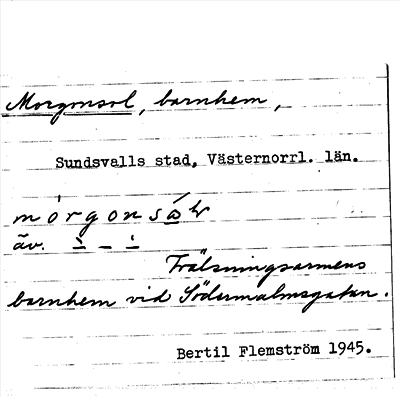 Morgonsol, barnhem,
Sundsvalls stad, Västernorrl. län.
mórgonsώ̲lr
äv. ̀ – ́
Frälsningsarmens
barnhem vid Södermalmsgatan.
Bertil Flemström 1945.